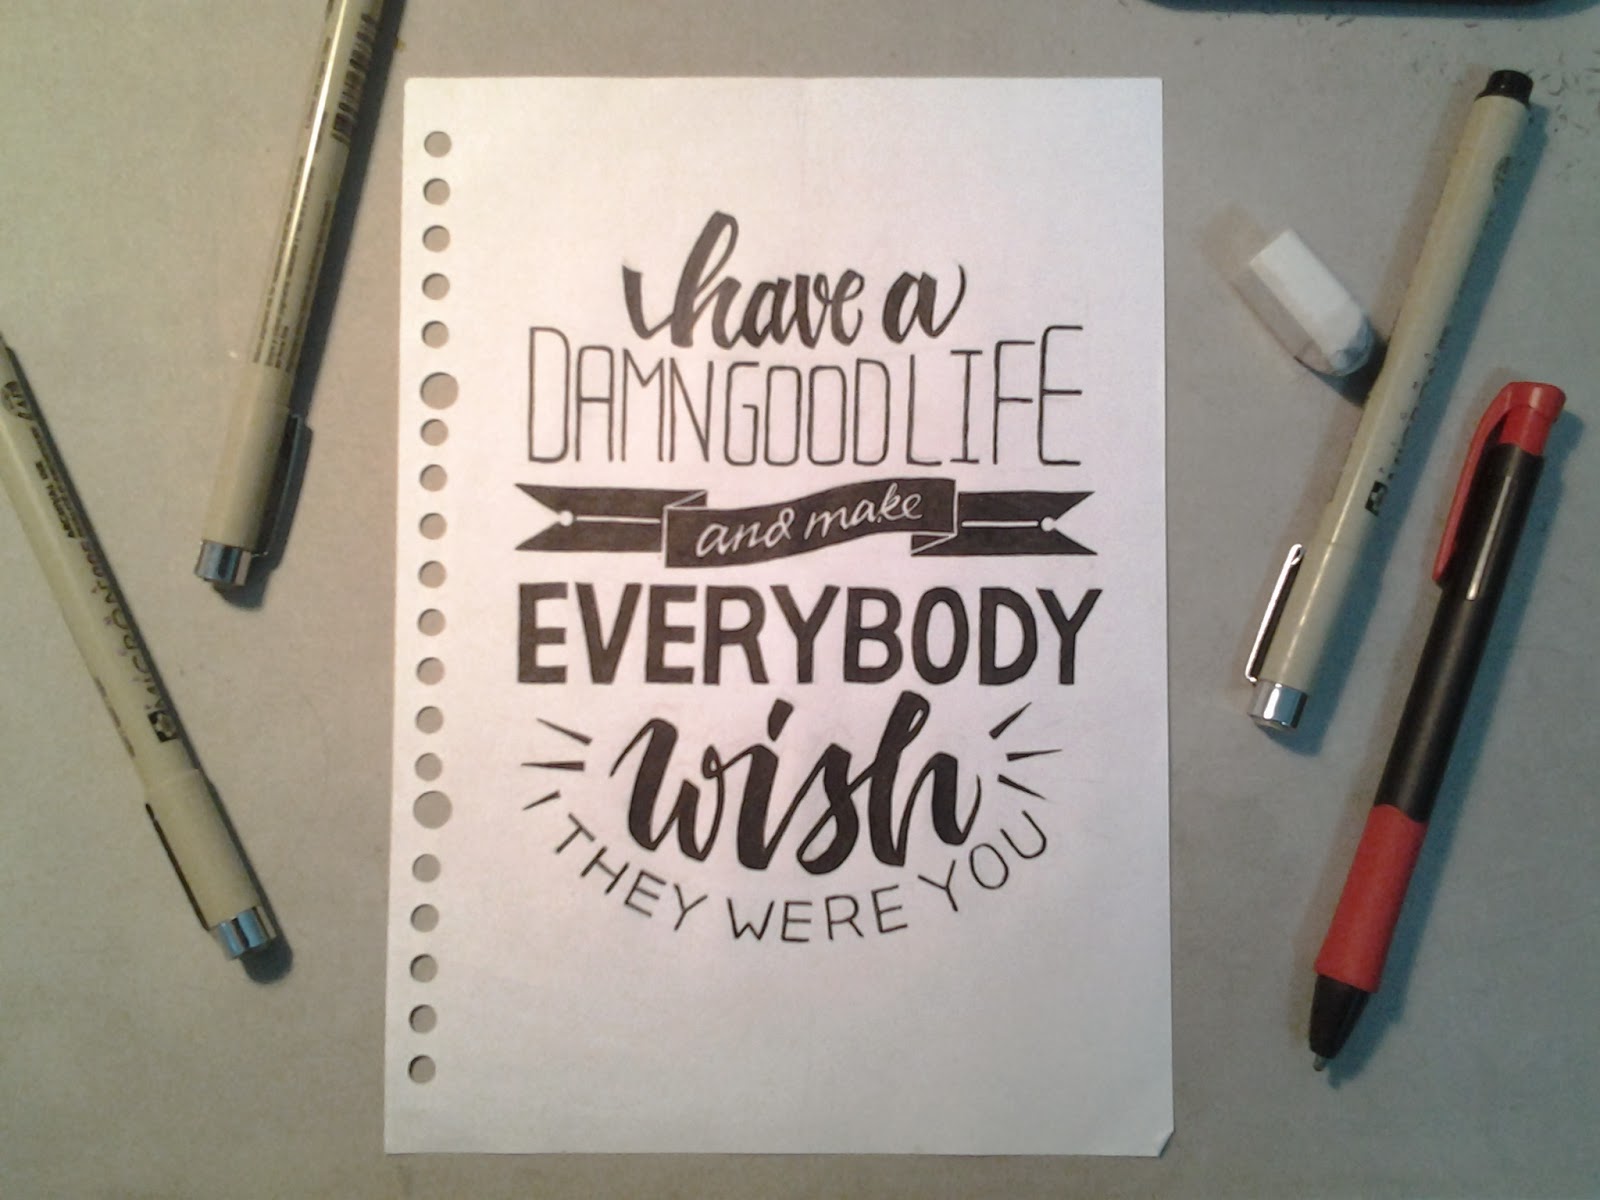 have a
DAMN GOOD LIFE
and make
EVERYBODY
wish
THEY WERE YOU